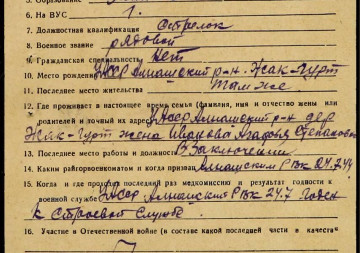 6. На ВУС 1.
7. Должностная квалификация Стрелок
8. Военное звание рядовой
9. Гражданская специальность Нет
10. Место рождения УАССР Алнашский р-н. Жак-Гурт
11. Последнее место жительства Там же
12. Где проживает в настоящее время семья (фамилия, имя и отчество жены или
родителей и точный их адрес) УАССР Алнашский р-н дер
Жак-Гурт жена Иванова Агафия Степановна
13. Последнее место работы и должность В заключении
14. Каким райгорвоенкоматом и когда призван Алнашским РВК 24.7.44
15. Когда и где проходил последний раз медкомиссию и результат годности к
военной службе УАССР Алнашский РВК 24.7 годен
к строевой службе.
16. Участие в Отечественной войне (в составе какой последней части в качестве